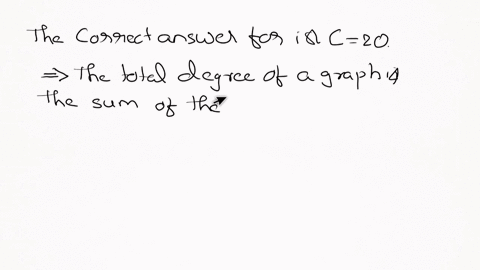 The Correct answer for is C=20.
⇒ The total degree of a graph is
the sum of the